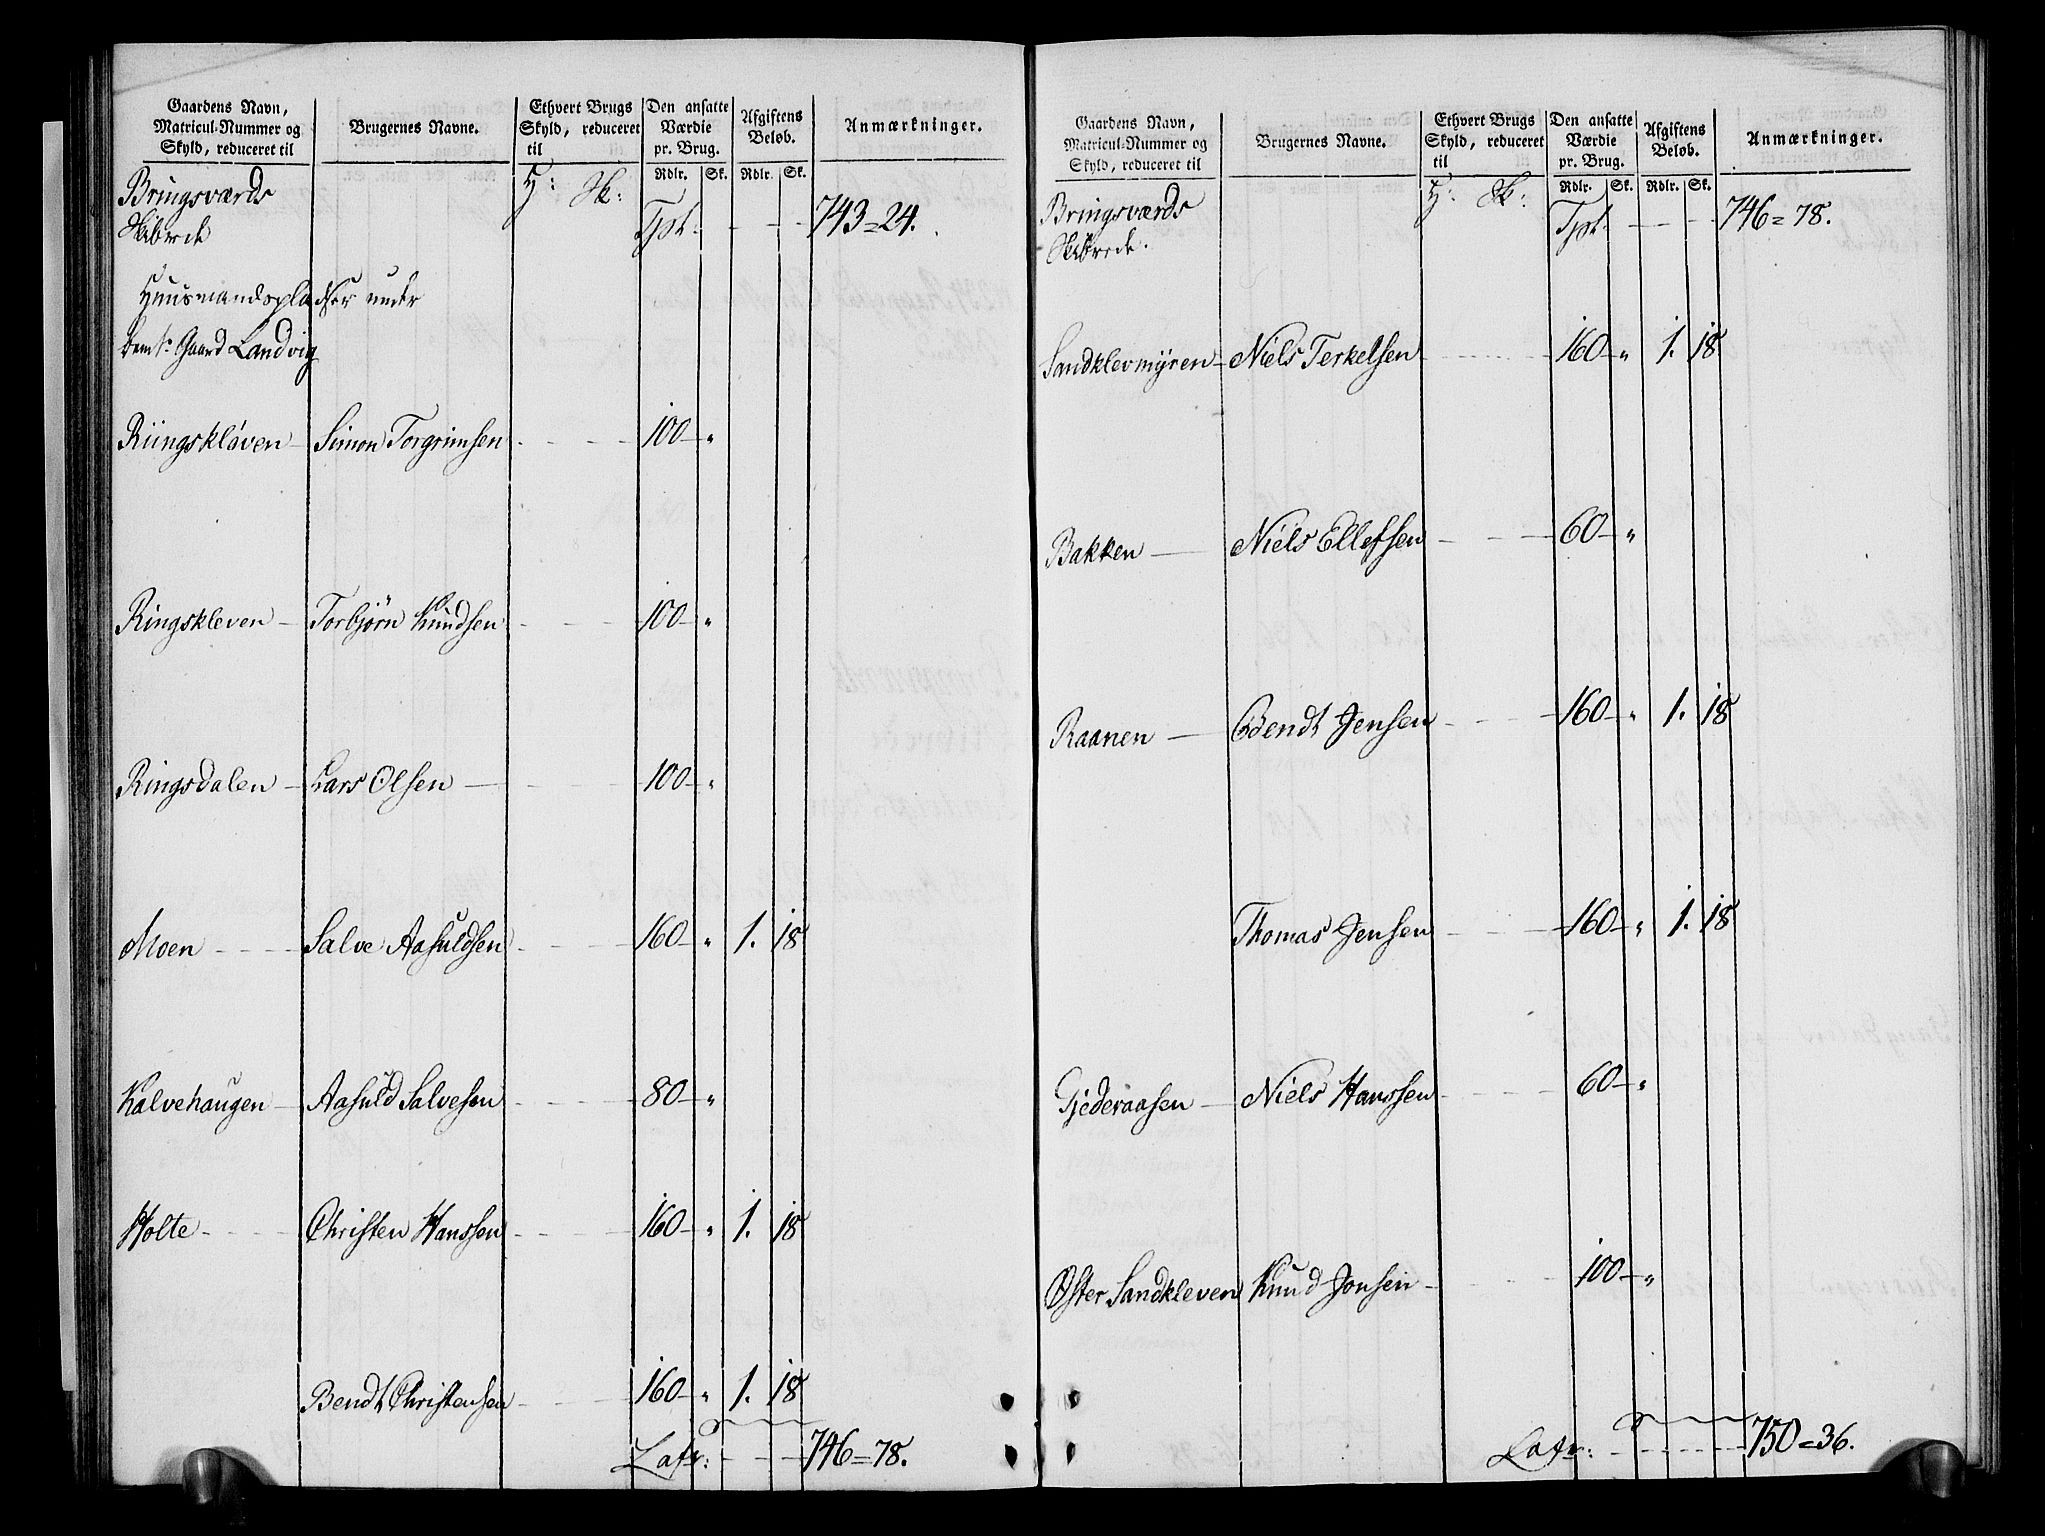 Gaardens Navn, Matricul-Nummer og Skyld, reduceret til | Brugernes Navne. | Ethvert Brugs Skyld, reduceret til | Den ansatte Værdie pr. Brug. | Afgiftens Beløb. | Anmærkninger.
Rdlr. Sk. Rdlr. Sk.
Bringsværds H: Sk:
Skibrede Tpt: - - - 743=24.
Huusmandspladser under
bemte Gaard Landvig
Riingskläven - Simon Torgrimsen - - - 100 - "
Ringskleven - Torbjørn Knudsen - - - 100 - "
Ringsdalen - Lars Olsen - - - 100 - "
Moen - - - Salve Aasuldsen - - - 160 - " 1. 18
Kalvehaugen - Aasuld Salvesen - - - 80 - "
Holte - - - Christen Hanssen - - - 160 - " 1. 18
Bendt Christensen - - - 160 - " 1. 18
Latr: - - - 746=78.
Gaardens Navn, Matricul-Nummer og Skyld, reduceret til | Brugernes Navne. | Ethvert Brugs Skyld, reduceret til | Den ansatte Værdie pr. Brug. | Afgiftens Beløb. | Anmærkninger.
Rdlr. Sk. Rdlr. Sk.
Bringsværds H: Sk:
Skibrede. Tpt. - - - 746=78.
Sandklevmÿren - Niels Terkelsen - - - 160 - " 1. 18
Bakken - Niels Ellefsen - - - 60 - "
Raanen - Bendt Jensen - - - 160 - " 1. 18
Thomas Jensen - - - 160 - " 1. 18
Gjederaasen - Niels Hanssen - - - 60 - "
Øster Sandkleven Knud Jonsen - - - 100 - "
Latr: - - - 750=36.